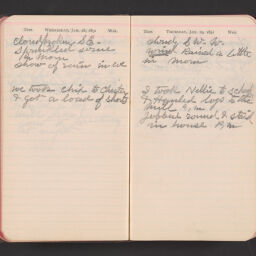 Ther. Wednesday, Jan. 28, 1891 Wea.
Cloudy S.E.
Sprinkled some
in Morn
show of rain in eve
we took Chip to Chester
& got a load of shorts
Ther. Thursday, Jan. 29, 1891 Wea.
Cloudy S.W. W.
wind Rained a little
in morn
I took Nellie to school
& Hauled logs to the
mill A.M.
Jobbed round & staid
in house P.M